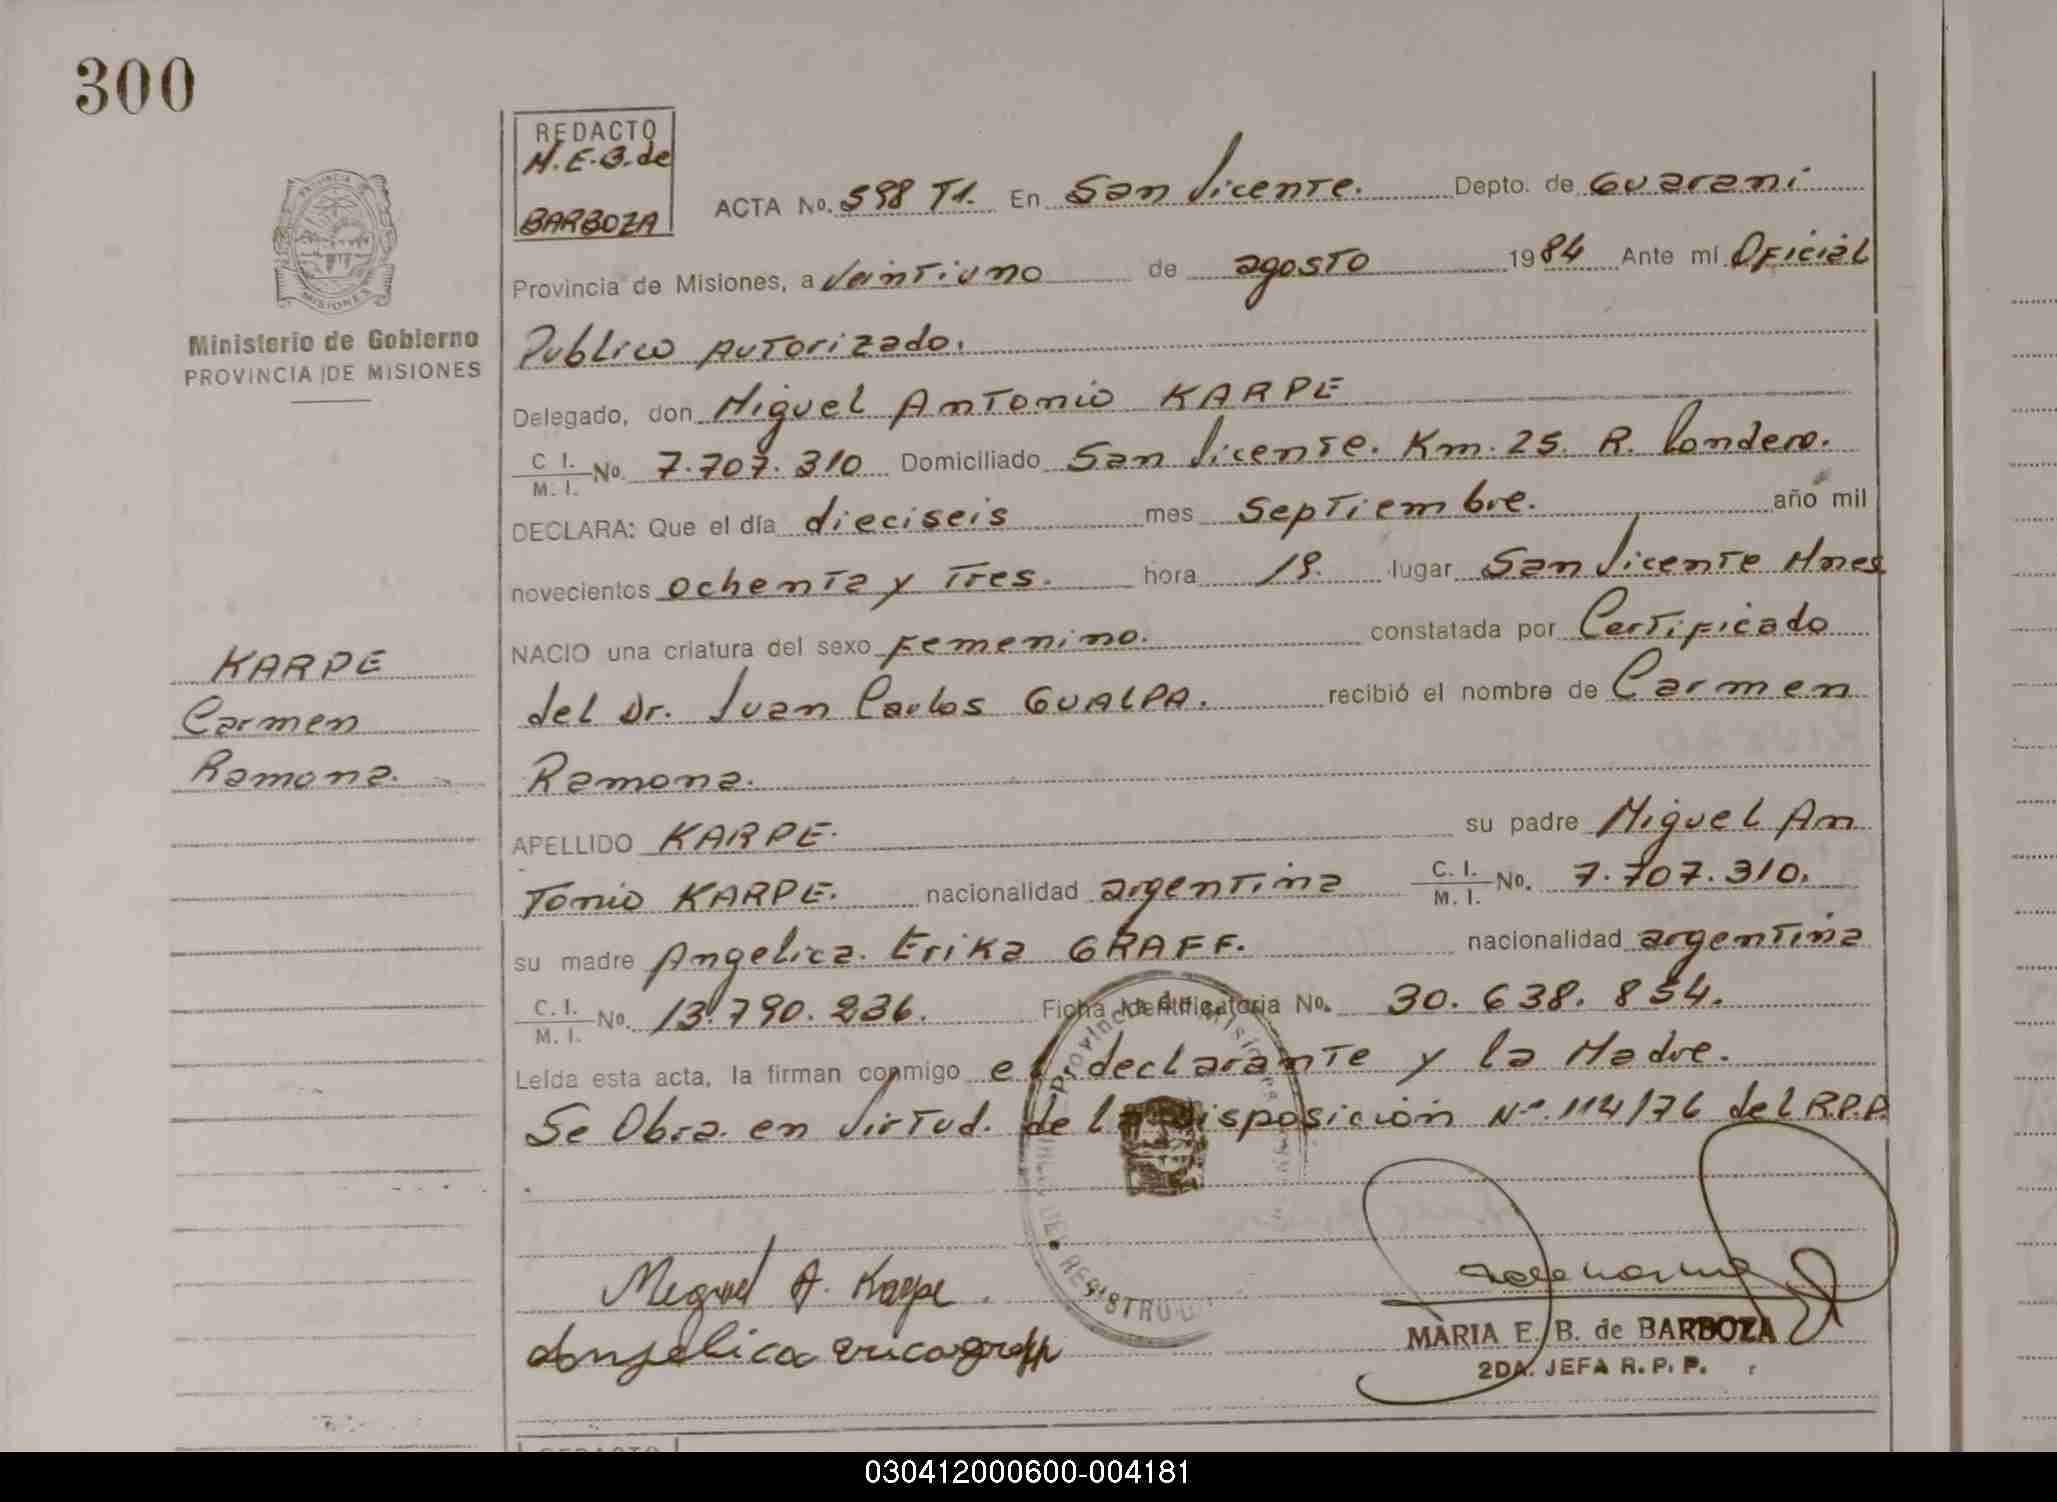 300
PROVINCIA DE
MISIONES
Ministerio de Gobierno
PROVINCIA DE MISIONES
KARPE
Carmen
Ramona.
REDACTO
M.E.B. de
BARBOZA
ACTA No. 598 T1. En San Vicente. Depto. de Guarani
Provincia de Misiones, a Veintiuno de agosto 1984 Ante mí Oficial
Publico Autorizado.
Delegado, don Miguel Antonio KARPE
C. I. / M. I. No. 7.707.310 Domiciliado San Vicente. Km. 25. R. Londero.
DECLARA: Que el día dieciseis mes Septiembre. año mil
novecientos ochenta y Tres. hora 19. lugar San Vicente Mnes
NACIO una criatura del sexo Femenino. constatada por Certificado
del Dr. Juan Carlos GUALPA. recibió el nombre de Carmen
Ramona.
APELLIDO KARPE. su padre Miguel An
Tonio KARPE. nacionalidad argentina C. I. / M. I. No. 7.707.310.
su madre Angelica. Erika GRAFF. nacionalidad argentina
C. I. / M. I. No. 13.790.236. Ficha Identificatoria No. 30.638.854.
Leída esta acta, la firman conmigo el declarante y la Madre.
Se Obra. en Virtud. de la Disposición Nº. 114/76 del R.P.P.
Miguel A. Karpe.
Angelica erica graff
MARIA E. B. de BARBOZA
2DA. JEFA R. P. P.
REDACTO
030412000600-004181